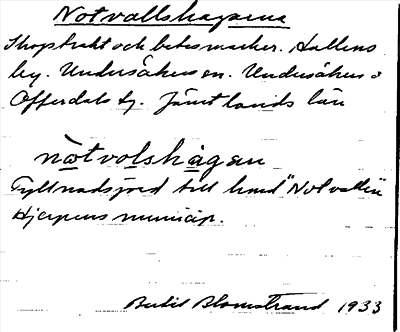 Notvallshagarna
Skogstrakt och betesmarker. Hallens
by. Undersåkers sn. Undersåkers o
Offerdals tg. Jämtlands län
nòtvolshágan
Fyllnadsjord till hmd "Notvallen
Hjerpens municip.
Bertil Blomstrand 1933